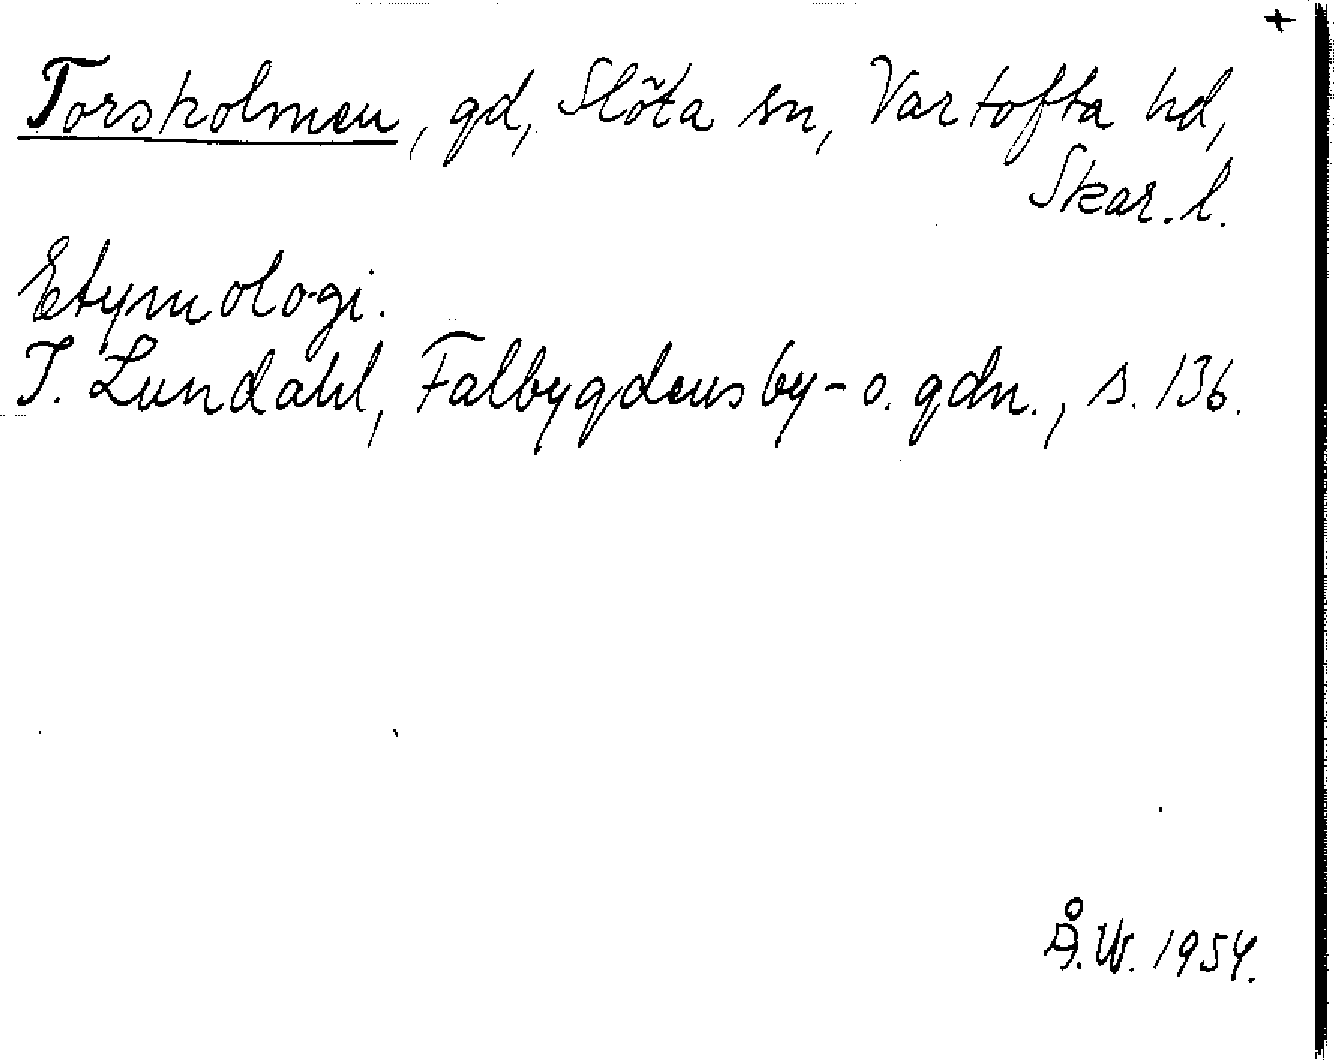 +
Torsholmen, gd, Slöta sn, Vartofta hd,
Skar. l.
Etymologi.
I. Lundahl, Falbygdens by- o. gdn., s. 136.
Å.W. 1954.